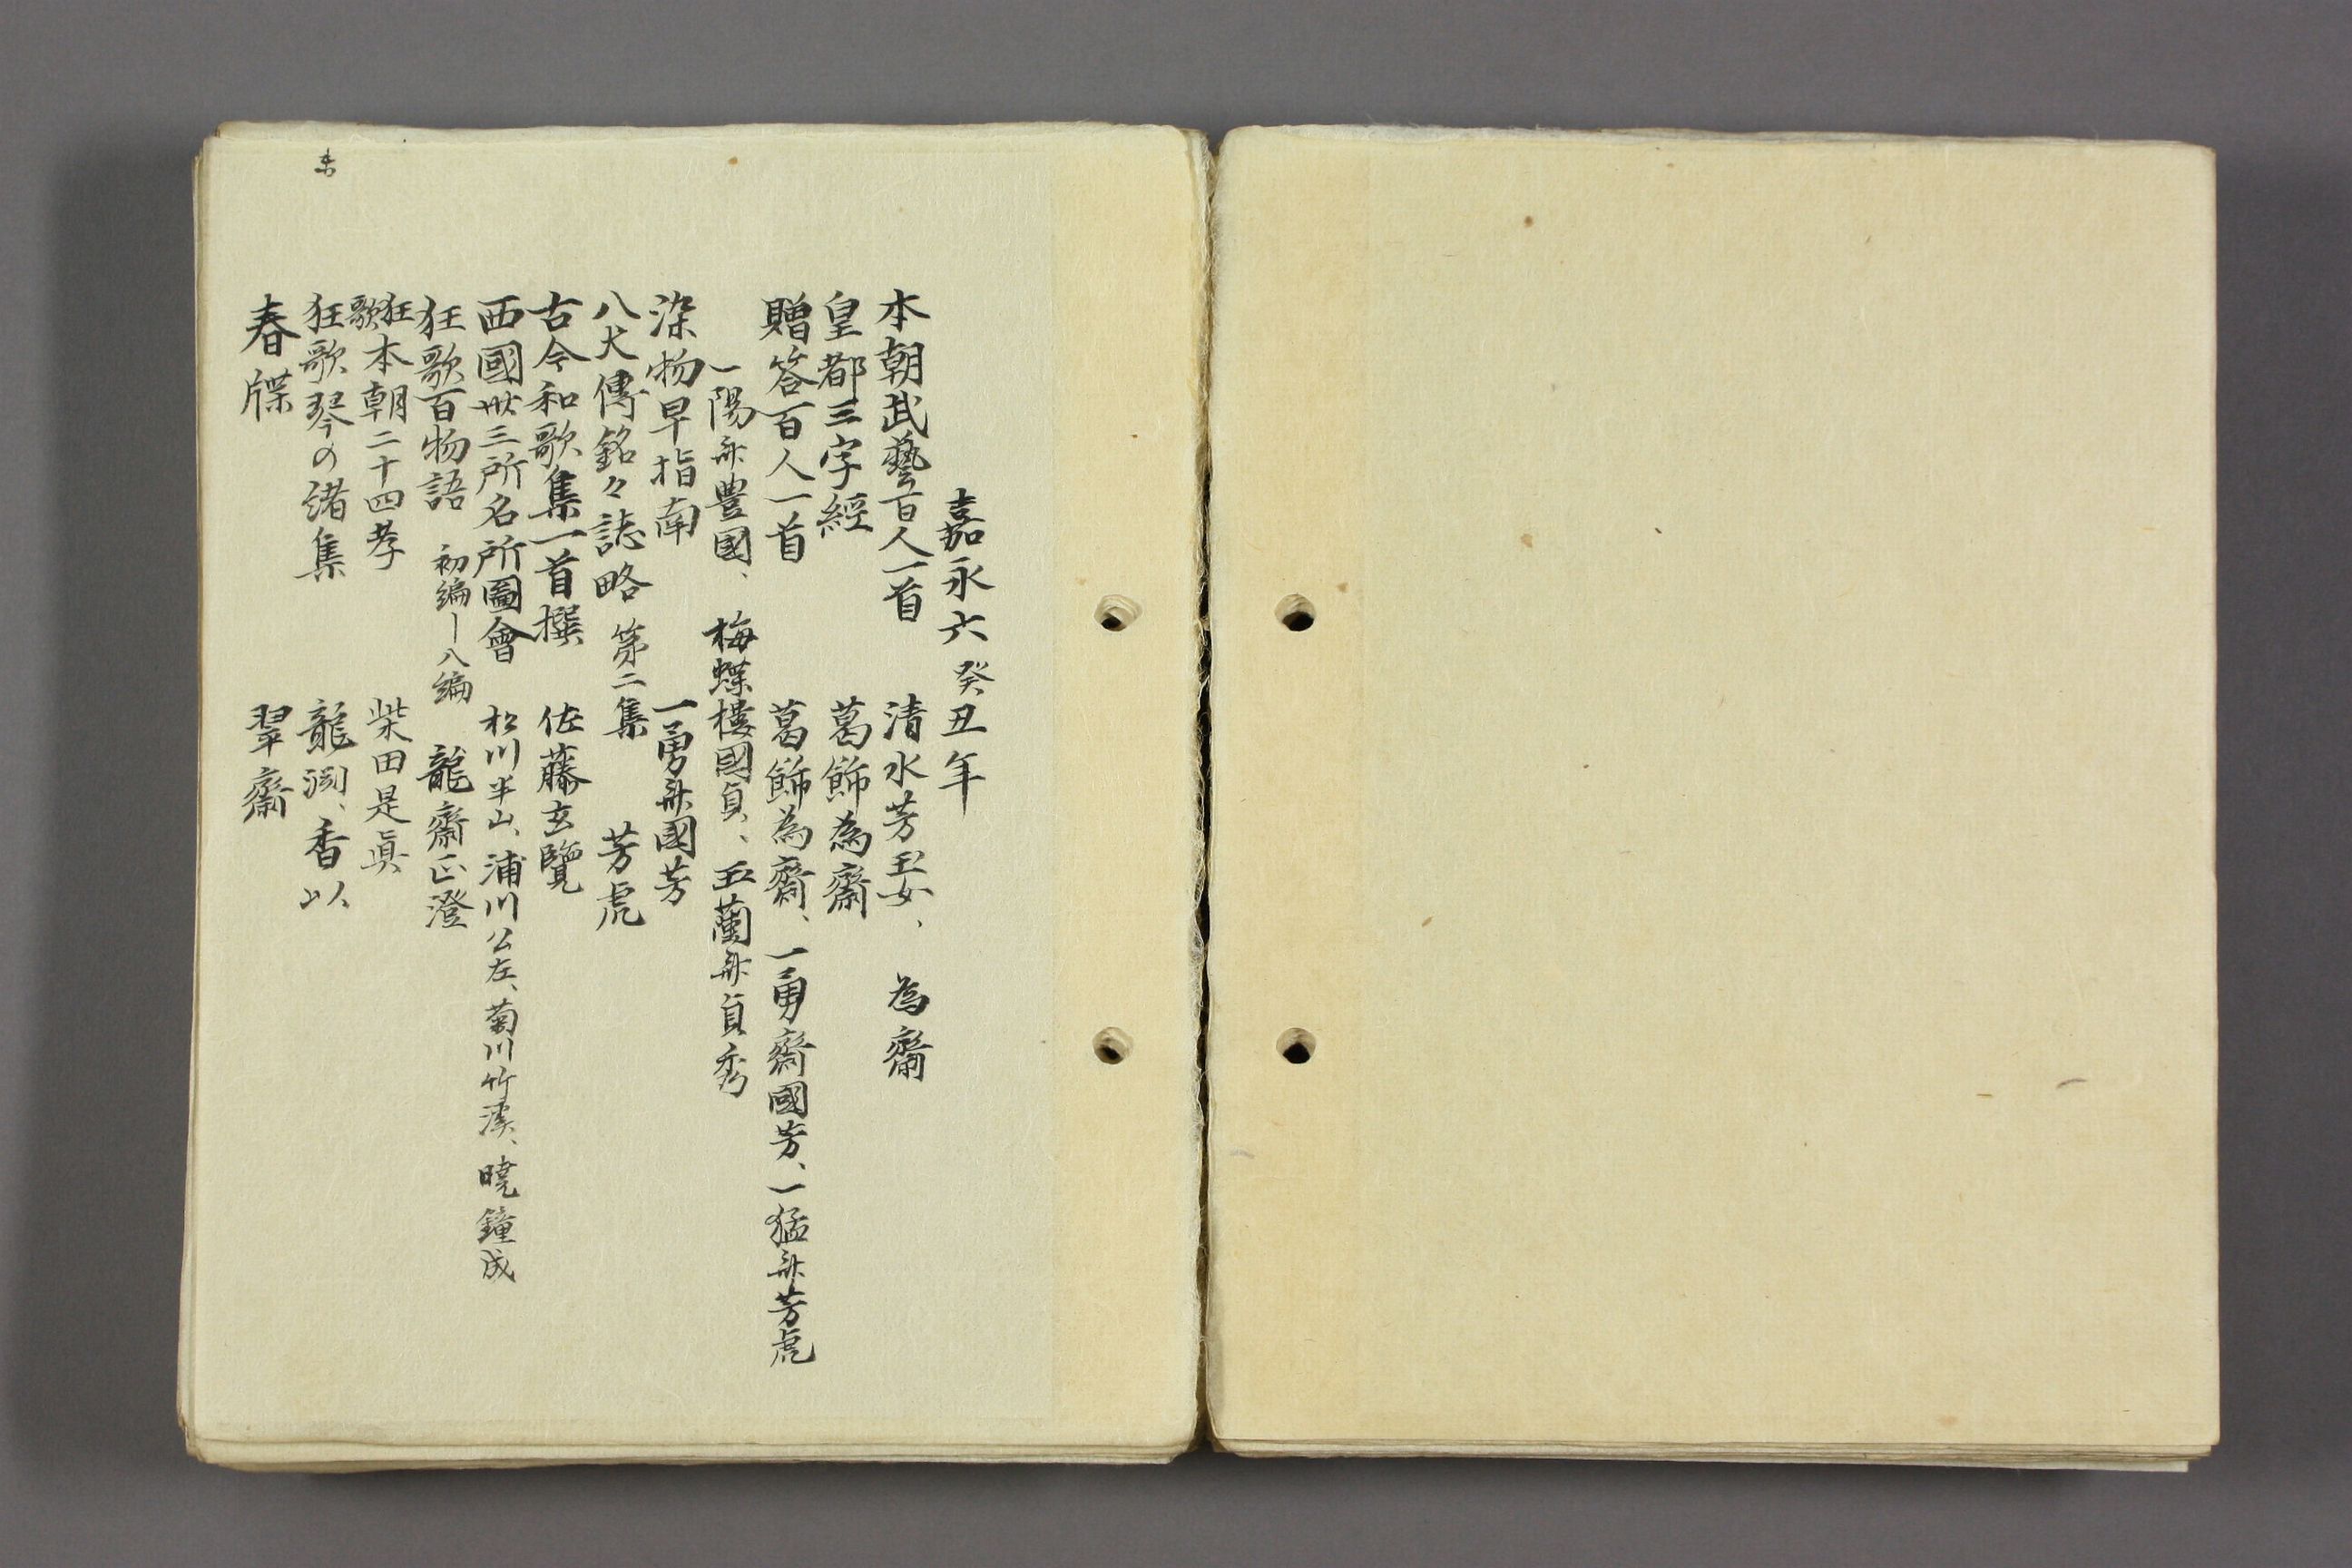 嘉永六癸丑年
本朝武藝百人一首　清水芳玉女、為齋
皇都三字經　葛飾為齋
贈答百人一首　葛飾為齋、一勇齋國芳、一猛斎芳虎
一陽斎豊國、梅蝶樓國貞、玉蘭斎貞秀
染物早指南　一勇斎國芳
八犬傳銘々誌略　第二集　芳虎
古今和歌集一首撰　佐藤玄覽
西國卅三所名所圖會　松川半山、浦川公左、菊川竹溪、曉鐘成
狂歌百物語　初編ー八編　龍齋正澄
狂歌本朝二十四孝　柴田是眞
狂歌琴の緒集　龍渕、香以
春牒　翠齋